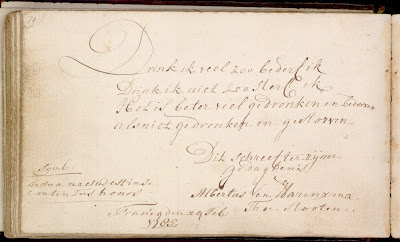 Drink ik veel zoo bederf ik
Drink ik niet zoo sterf ik
Het is beter veel gedronken en bedorven
als niet gedronken en gestorven
Dit schreef ter zijner
gedagtenis
Symb:
ardua
Albertus van Harinxma
Thoe Slooten
Franeq den 29 Feb: